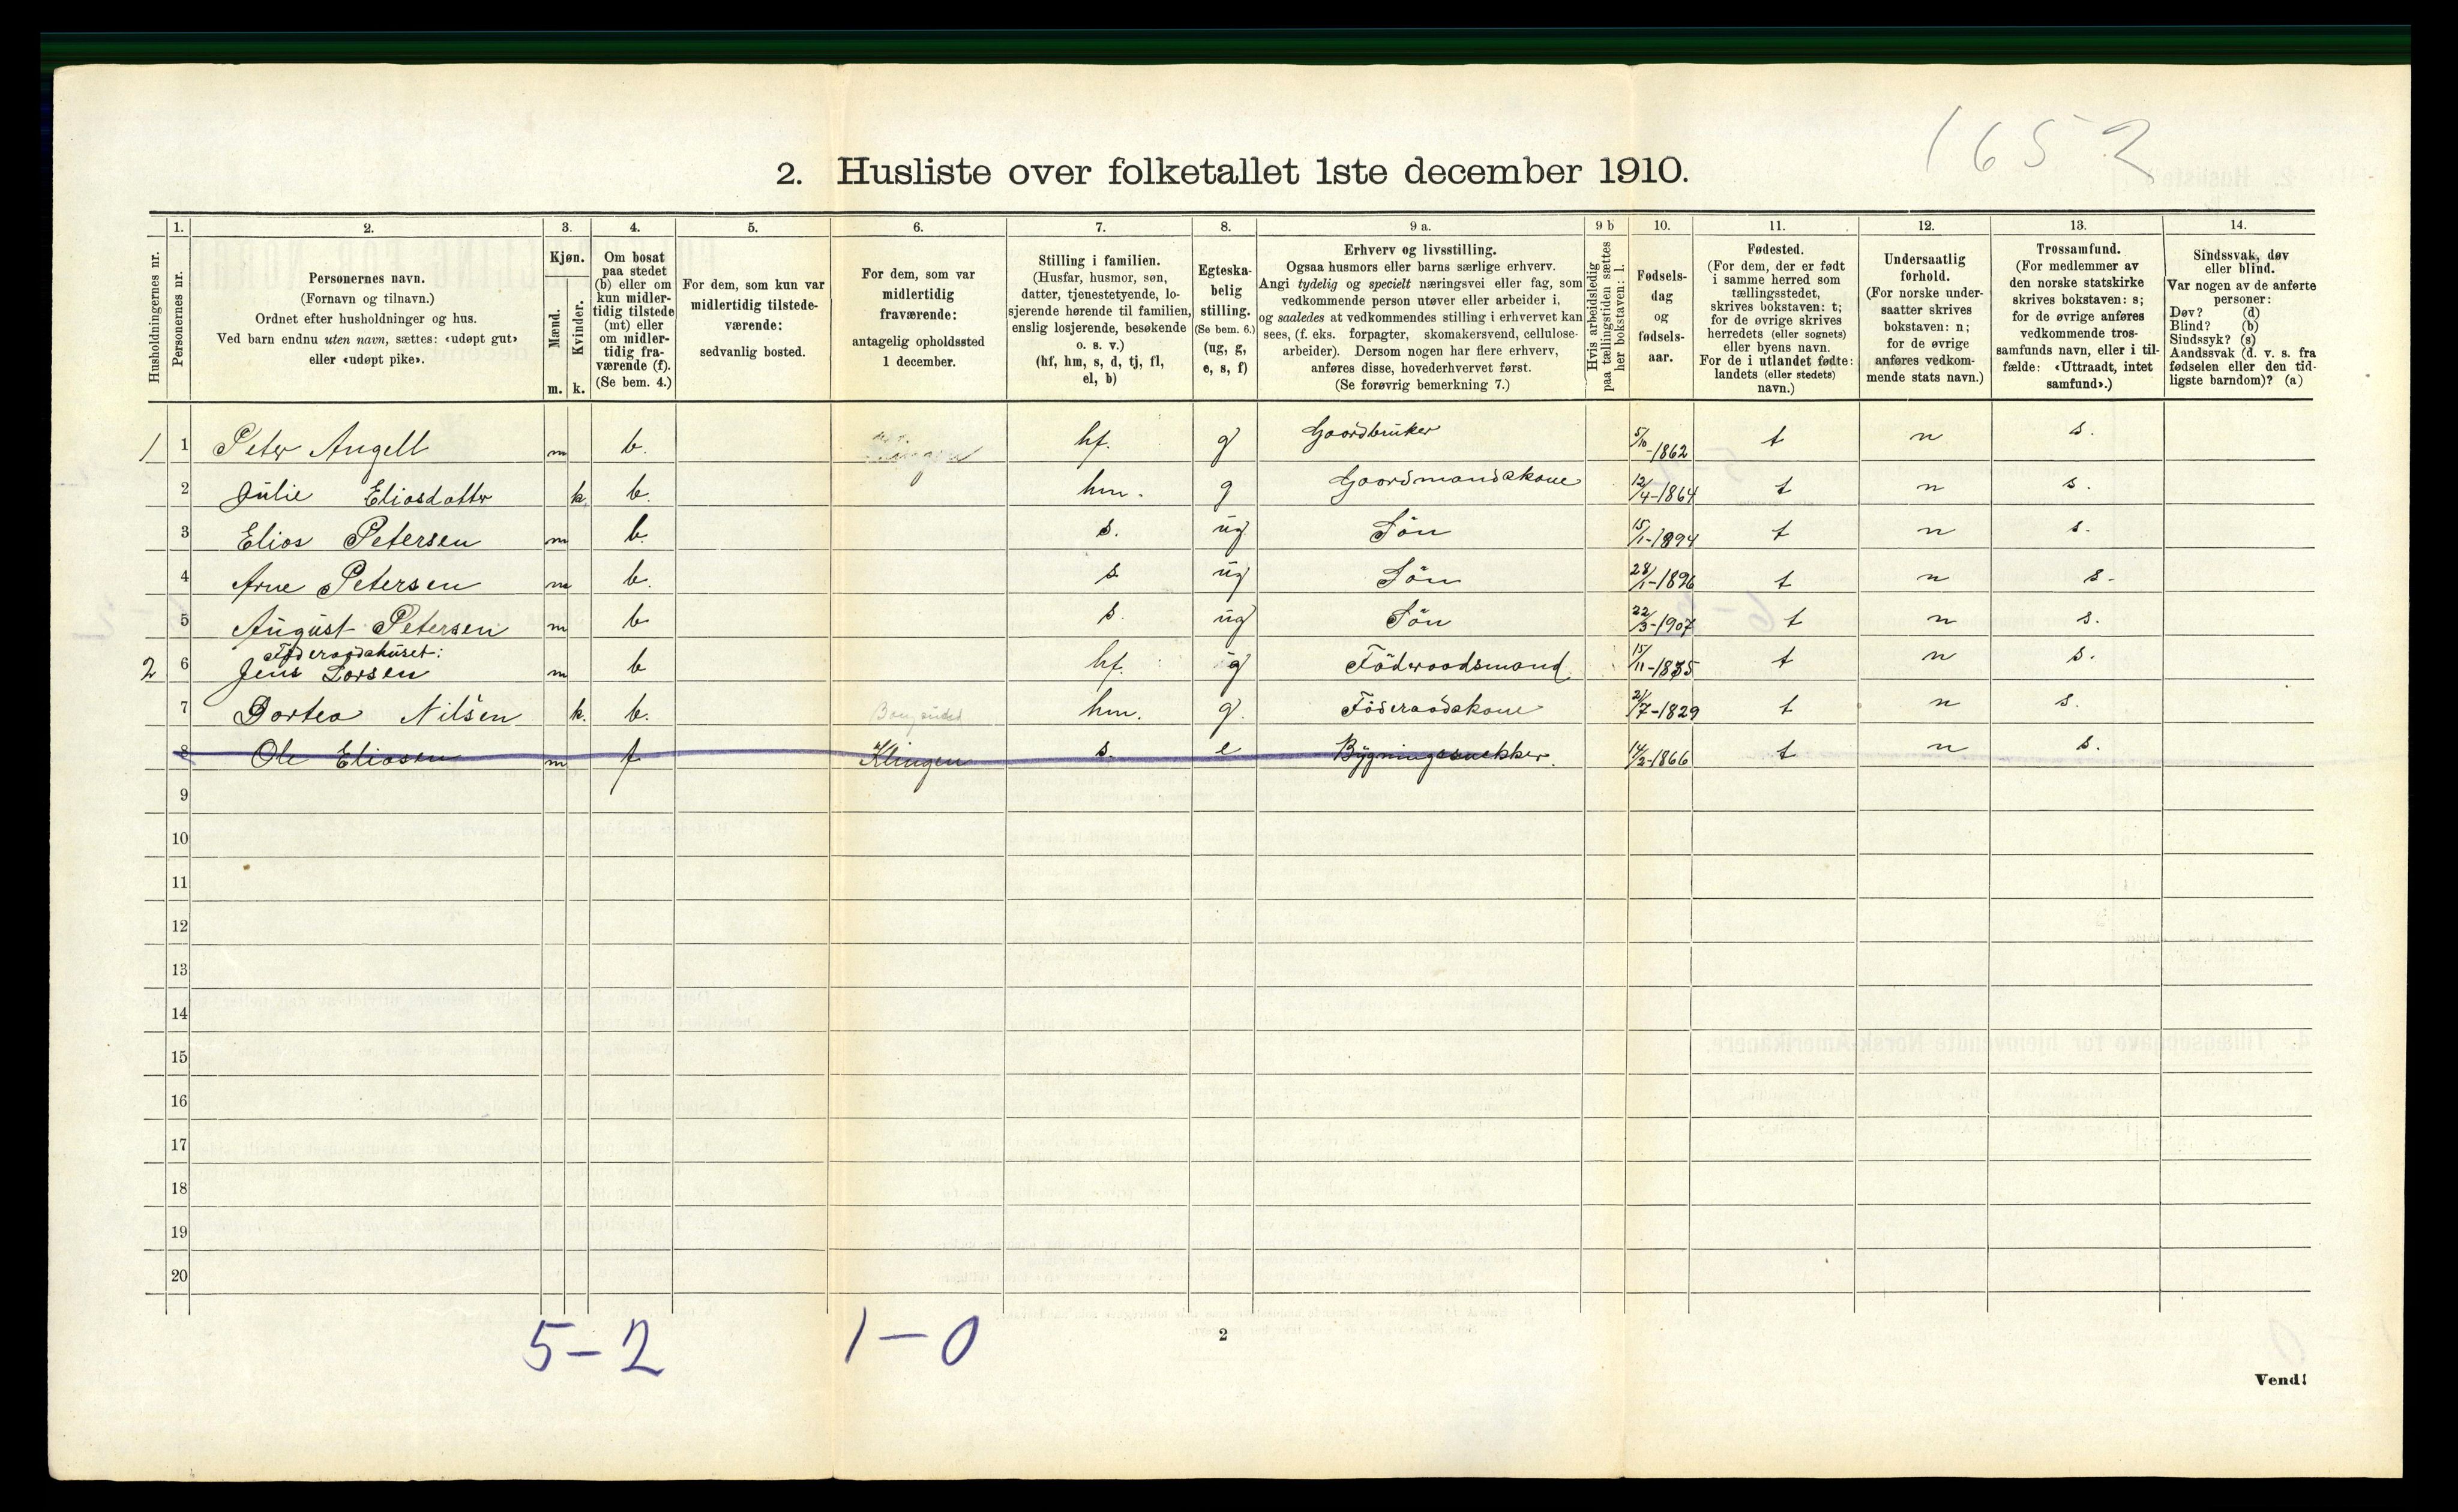 1652
2. Husliste over folketallet 1ste december 1910.
Husholdningernes nr.
1.
Personernes nr.
2.
Personernes navn.
(Fornavn og tilnavn.)
Ordnet efter husholdninger og hus.
Ved barn endnu uten navn, sættes: «udøpt gut»
eller «udøpt pike».
3.
Kjøn.
Mænd.
Kvinder.
m. k.
4.
Om bosat
paa stedet
(b) eller om
kun midler-
tidig tilstede
(mt) eller
om midler-
tidig fra-
værende (f).
(Se bem. 4.)
5.
For dem, som kun var
midlertidig tilstede-
værende:
sedvanlig bosted.
6.
For dem, som var
midlertidig
fraværende:
antagelig opholdssted
1 december.
7.
Stilling i familien.
(Husfar, husmor, søn,
datter, tjenestetyende, lo-
sjerende hørende til familien,
enslig losjerende, besøkende
o. s. v.)
(hf, hm, s, d, tj, fl,
el, b)
8.
Egteska-
belig
stilling.
(Se bem. 6.)
(ug, g,
e, s, f)
9 a.
Erhverv og livsstilling.
Ogsaa husmors eller barns særlige erhverv.
Angi tydelig og specielt næringsvei eller fag, som
vedkommende person utøver eller arbeider i,
og saaledes at vedkommendes stilling i erhvervet kan
sees, (f. eks. forpagter, skomakersvend, cellulose-
arbeider). Dersom nogen har flere erhverv,
anføres disse, hovederhvervet først.
(Se forøvrig bemerkning 7.)
9 b
Hvis arbeidsledig
paa tællingstiden sættes
her bokstaven: l.
10.
Fødsels-
dag
og
fødsels-
aar.
11.
Fødested.
(For dem, der er født
i samme herred som
tællingsstedet,
skrives bokstaven: t;
for de øvrige skrives
herredets (eller sognets)
eller byens navn.
For de i utlandet fødte:
landets (eller stedets)
navn.)
12.
Undersaatlig
forhold.
(For norske under-
saatter skrives
bokstaven: n;
for de øvrige
anføres vedkom-
mende stats navn.)
13.
Trossamfund.
(For medlemmer av
den norske statskirke
skrives bokstaven: s;
for de øvrige anføres
vedkommende tros-
samfunds navn, eller i til-
fælde: «Uttraadt, intet
samfund».)
14.
Sindssvak, døv
eller blind.
Var nogen av de anførte
personer:
Døv? (d)
Blind? (b)
Sindssyk? (s)
Aandssvak (d. v. s. fra
fødselen eller den tid-
ligste barndom)? (a)
1 1 Peter Angell m b. hf. g Gaardbruker 5/10-1862 t n s.
2 Julie Eliasdatter k b. hm. g Gaardmandskone 12/4-1864 t n s.
3 Elias Petersen m b. s. ug Søn 15/1-1894 t n s.
4 Arne Petersen m b. s ug Søn 28/1-1896 t n s.
5 August Petersen m b s. ug Søn 22/3-1907 t n s.
Föderaadshuset:
2 6 Jens Larsen m b hf. g Föderaadsmand 15/11-1835 t n s.
7 Dortea Nilsen k. b. hm. g. Föderaadskone 21/7-1829 t n s.
8 Ole Eliasen m f Klingen s. e Bygningssnekker. 14/2-1866 t n s.
9
10
11
12
13
14
15
16
17
18
19
20
5-2 1-0
2
Vend!